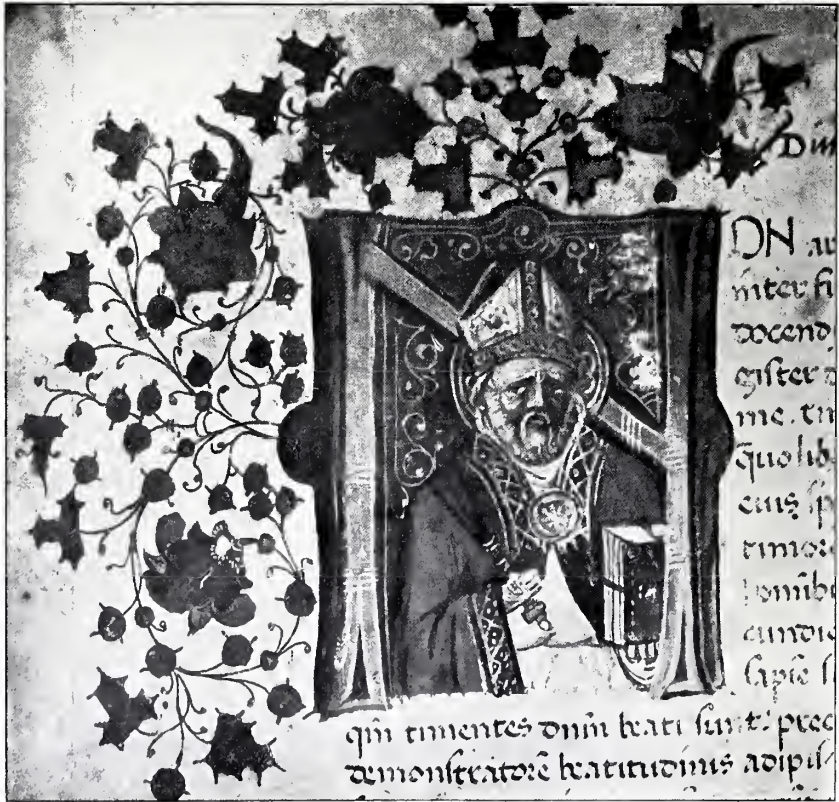 DN au
niter fi
docend
gister d
me. tu
quo lib
eius sp
timor
omnib
cundic
sapie s
qm timentes dnm beati sunt: prec
demonstratore beatitudinis adipis